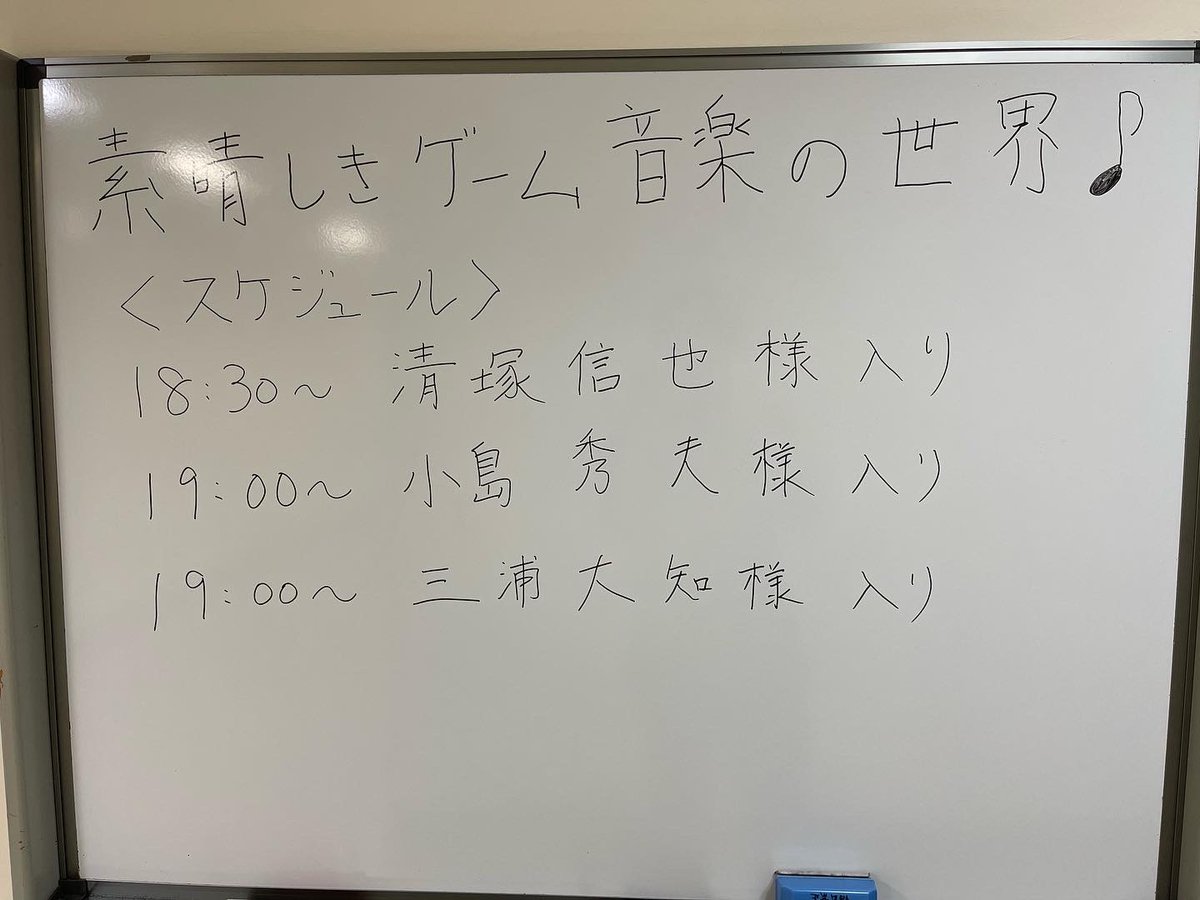 素晴しきゲーム音楽の世界♪
〈スケジュール〉
18:30～ 清塚信也様入り
19:00～ 小島秀夫様入り
19:00～ 三浦大知様入り